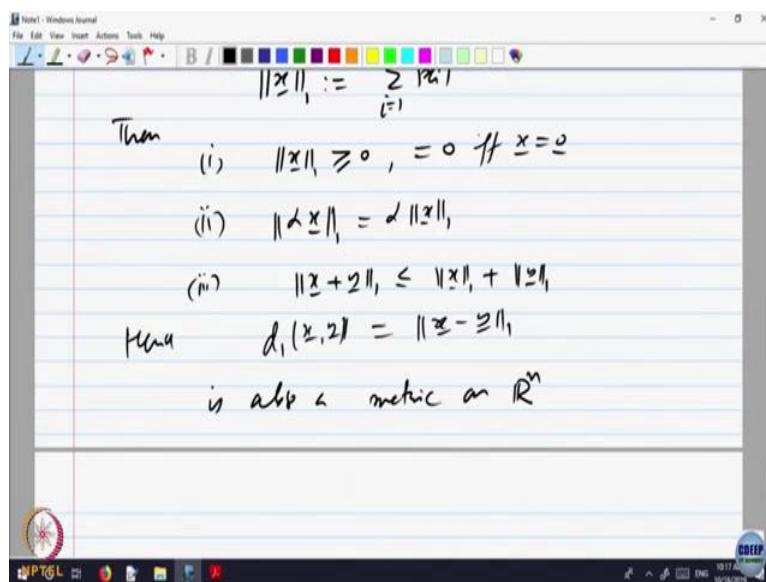 Note1 - Windows Journal
File Edit View Insert Actions Tools Help
B I
||x||₁ := Σ |xi|
i=1
Then
(i) ||x||₁ ≥ 0 , = 0 iff x = 0
(ii) ||αx||₁ = α ||x||₁
(iii) ||x + y||₁ ≤ ||x||₁ + ||y||₁
Hence d₁(x, y) = ||x - y||₁
is also a metric on ℝⁿ
NPTEL
CDEEP
ENG
10:17 AM